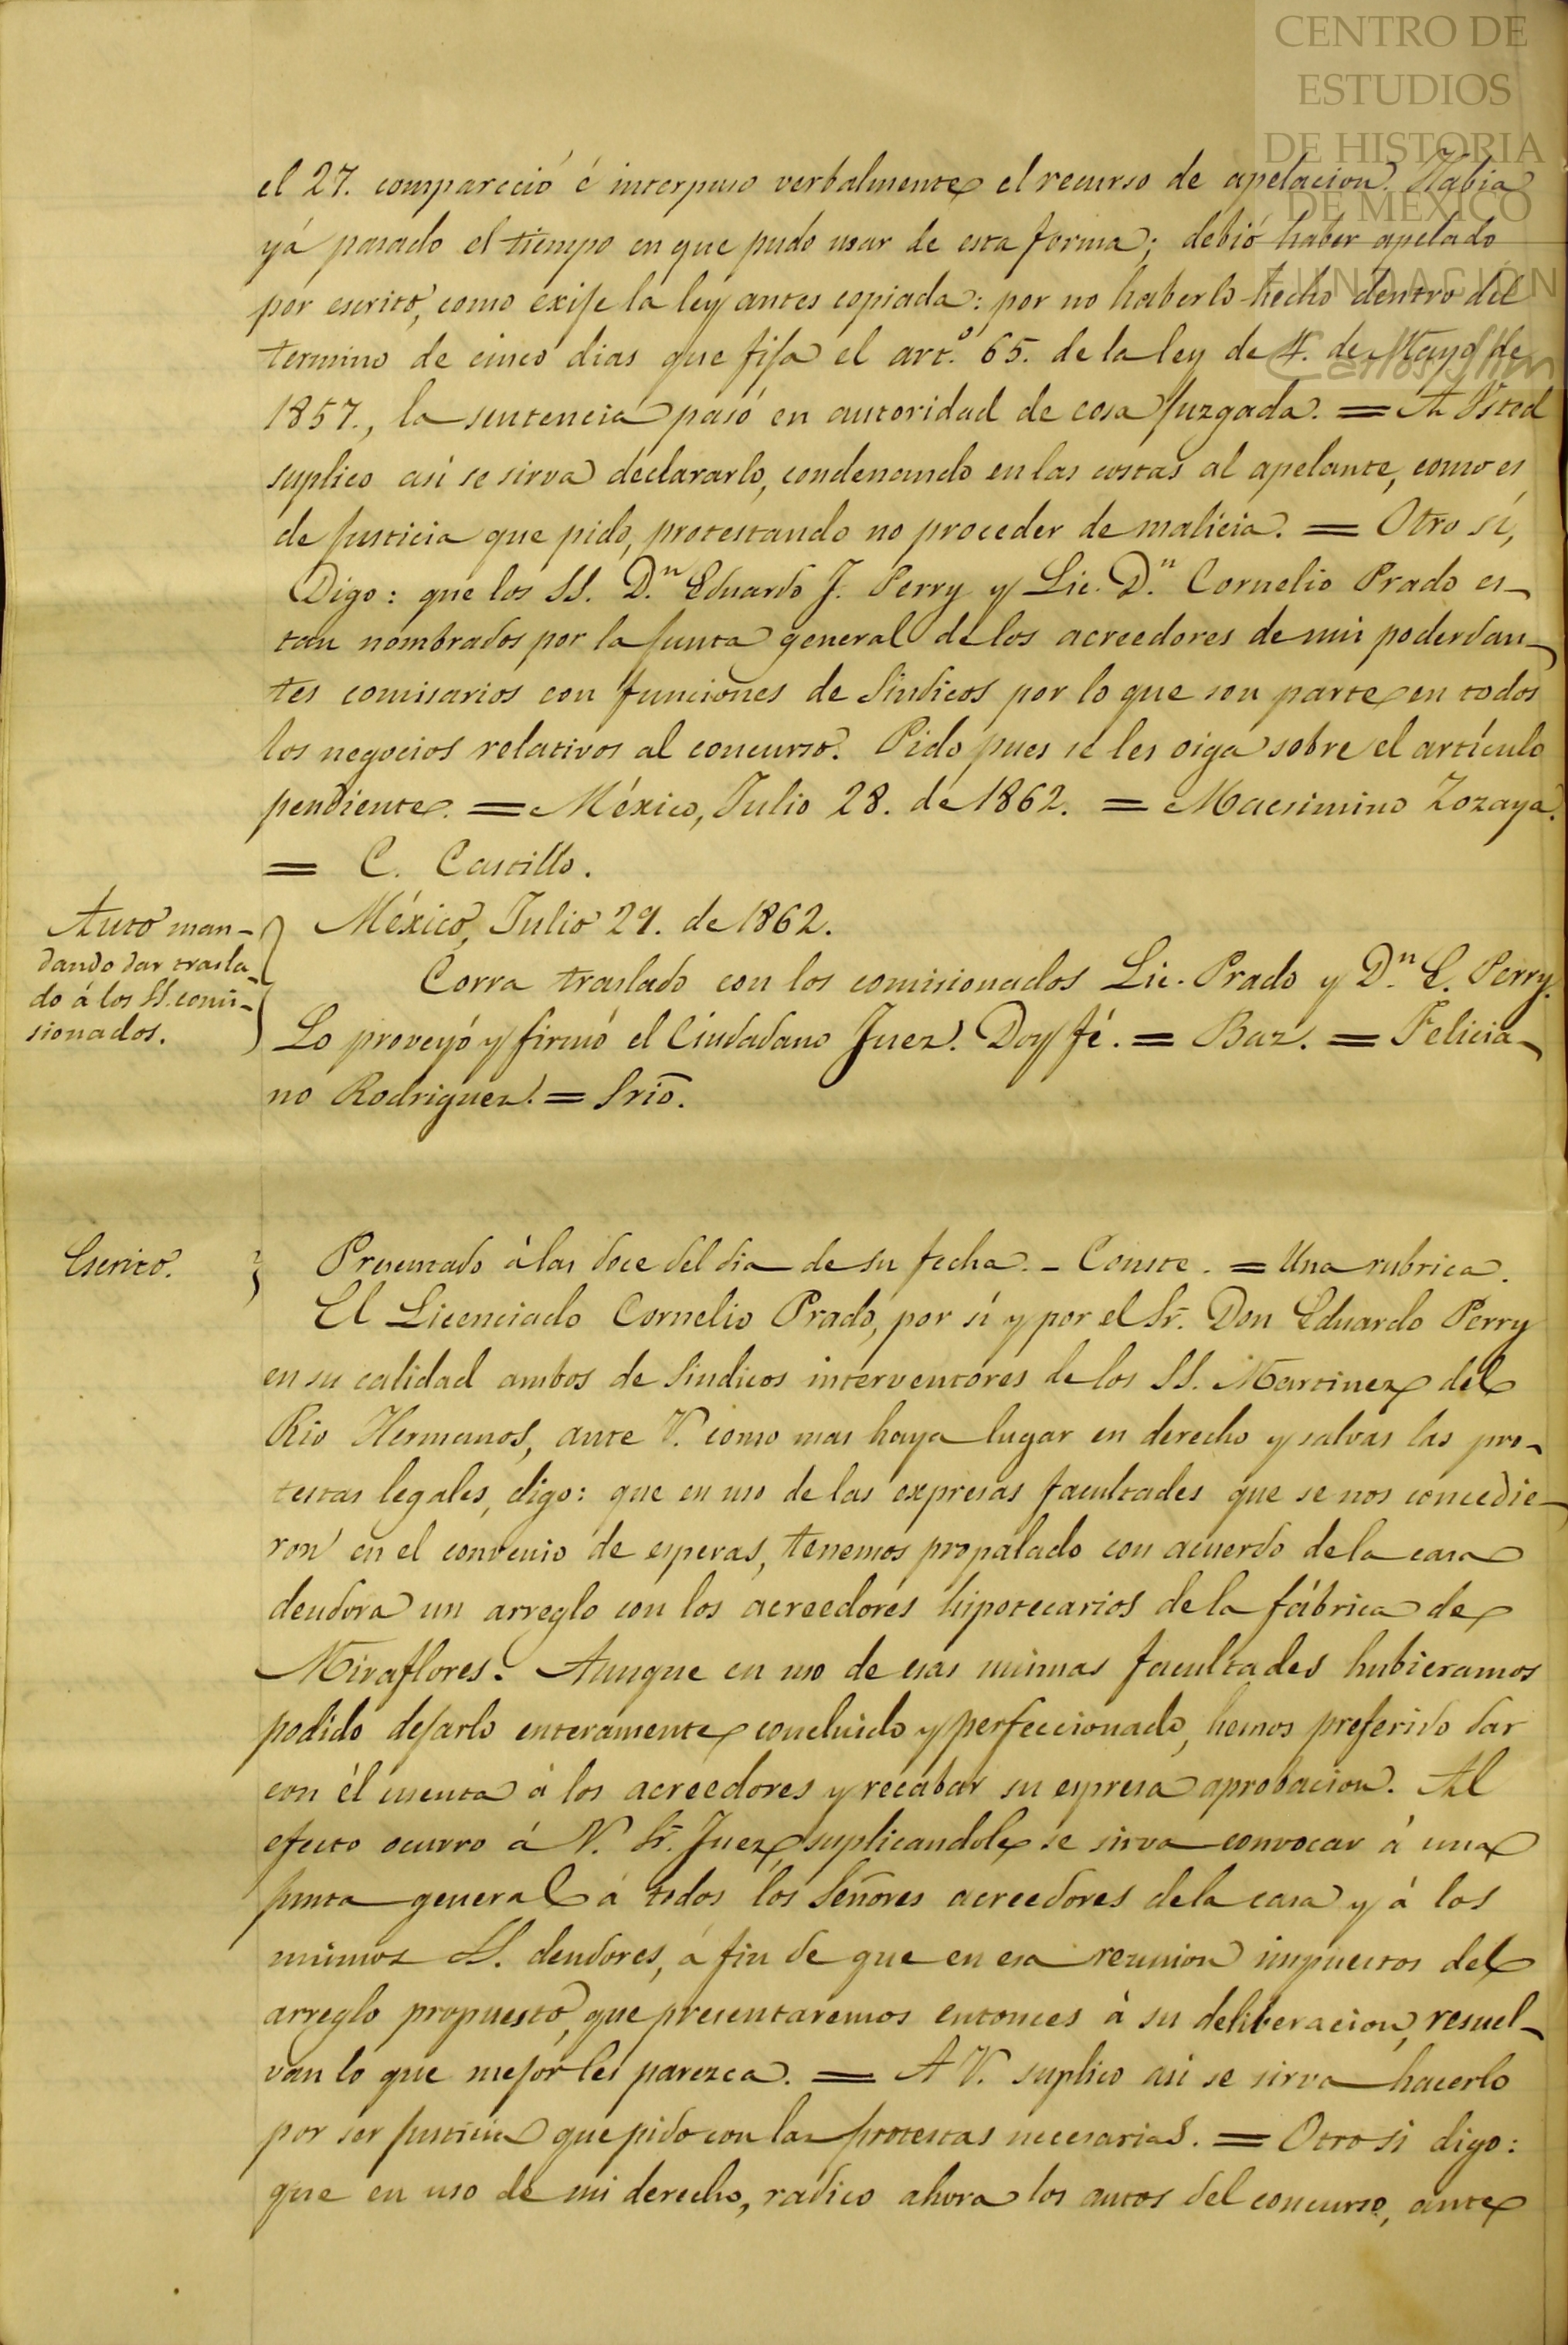 CENTRO DE
ESTUDIOS
DE HISTORIA
DE MEXICO
FUNDACION
Carlos Slim
el 27. compareció é interpuso verbalmente el recurso de apelacion. Habia
yá pasado el tiempo en que pudo usar de esta forma; debió haber apelado
por escrito, como exije la ley antes copiada: por no haberlo hecho dentro del
termino de cinco dias que fija el art.º 65. de la ley de 4. de Mayo de
1857., la sentencia pasó en autoridad de cosa juzgada. = A Usted
suplico asi se sirva declararlo, condenando en las costas al apelante, como es
de justicia que pido, protestando no proceder de malicia. = Otro sí,
Digo: que los SS. D.n Eduardo J. Perry y Lic. D.n Cornelio Prado es-
tan nombrados por la junta general de los acreedores de mis poderdan-
tes comisarios con funciones de Sindicos por lo que son parte en todos
los negocios relativos al concurso. Pido pues se les oiga sobre el artículo
pendiente. = México, Julio 28. de 1862. = Macsimino Zozaya.
= C. Castillo.
Auto man-
dando dar trasla-
do á los SS. comi-
sionados.
México, Julio 29. de 1862.
Corra traslado con los comisionados Lic. Prado y D.n E. Perry.
Lo proveyó y firmó el Ciudadano Juez. Doy fé. = Baz. = Felicia-
no Rodriguez. = Srio.
Escrito.
Presentado á las doce del dia de su fecha. - Conste. = Una rubrica.
El Licenciado Cornelio Prado, por sí y por el Sr. Don Eduardo Perry
en su calidad ambos de Sindicos interventores de los SS. Martinez del
Rio Hermanos, ante V. como mas haya lugar en derecho y salvas las pro-
testas legales, digo: que en uso de las expresas facultades que se nos concedie-
ron en el convenio de esperas, tenemos propalado con acuerdo de la casa
deudora un arreglo con los acreedores hipotecarios de la fábrica de
Miraflores. Aunque en uso de esas mismas facultades hubieramos
podido dejarlo enteramente concluido y perfeccionado, hemos preferido dar
con él cuenta á los acreedores y recabar su espresa aprobacion. Al
efecto ocurro á V. Sr. Juez, suplicandole se sirva convocar á una
junta general á todos los Señores acreedores de la casa y á los
mismos SS. deudores, á fin de que en esa reunion impuestos del
arreglo propuesto, que presentaremos entonces á su deliberacion, resuel-
van lo que mejor les parezca. = A V. suplico asi se sirva hacerlo
por ser justicia que pido con las protestas necesarias. = Otro si digo:
que en uso de mi derecho, radico ahora los autos del concurso, ante